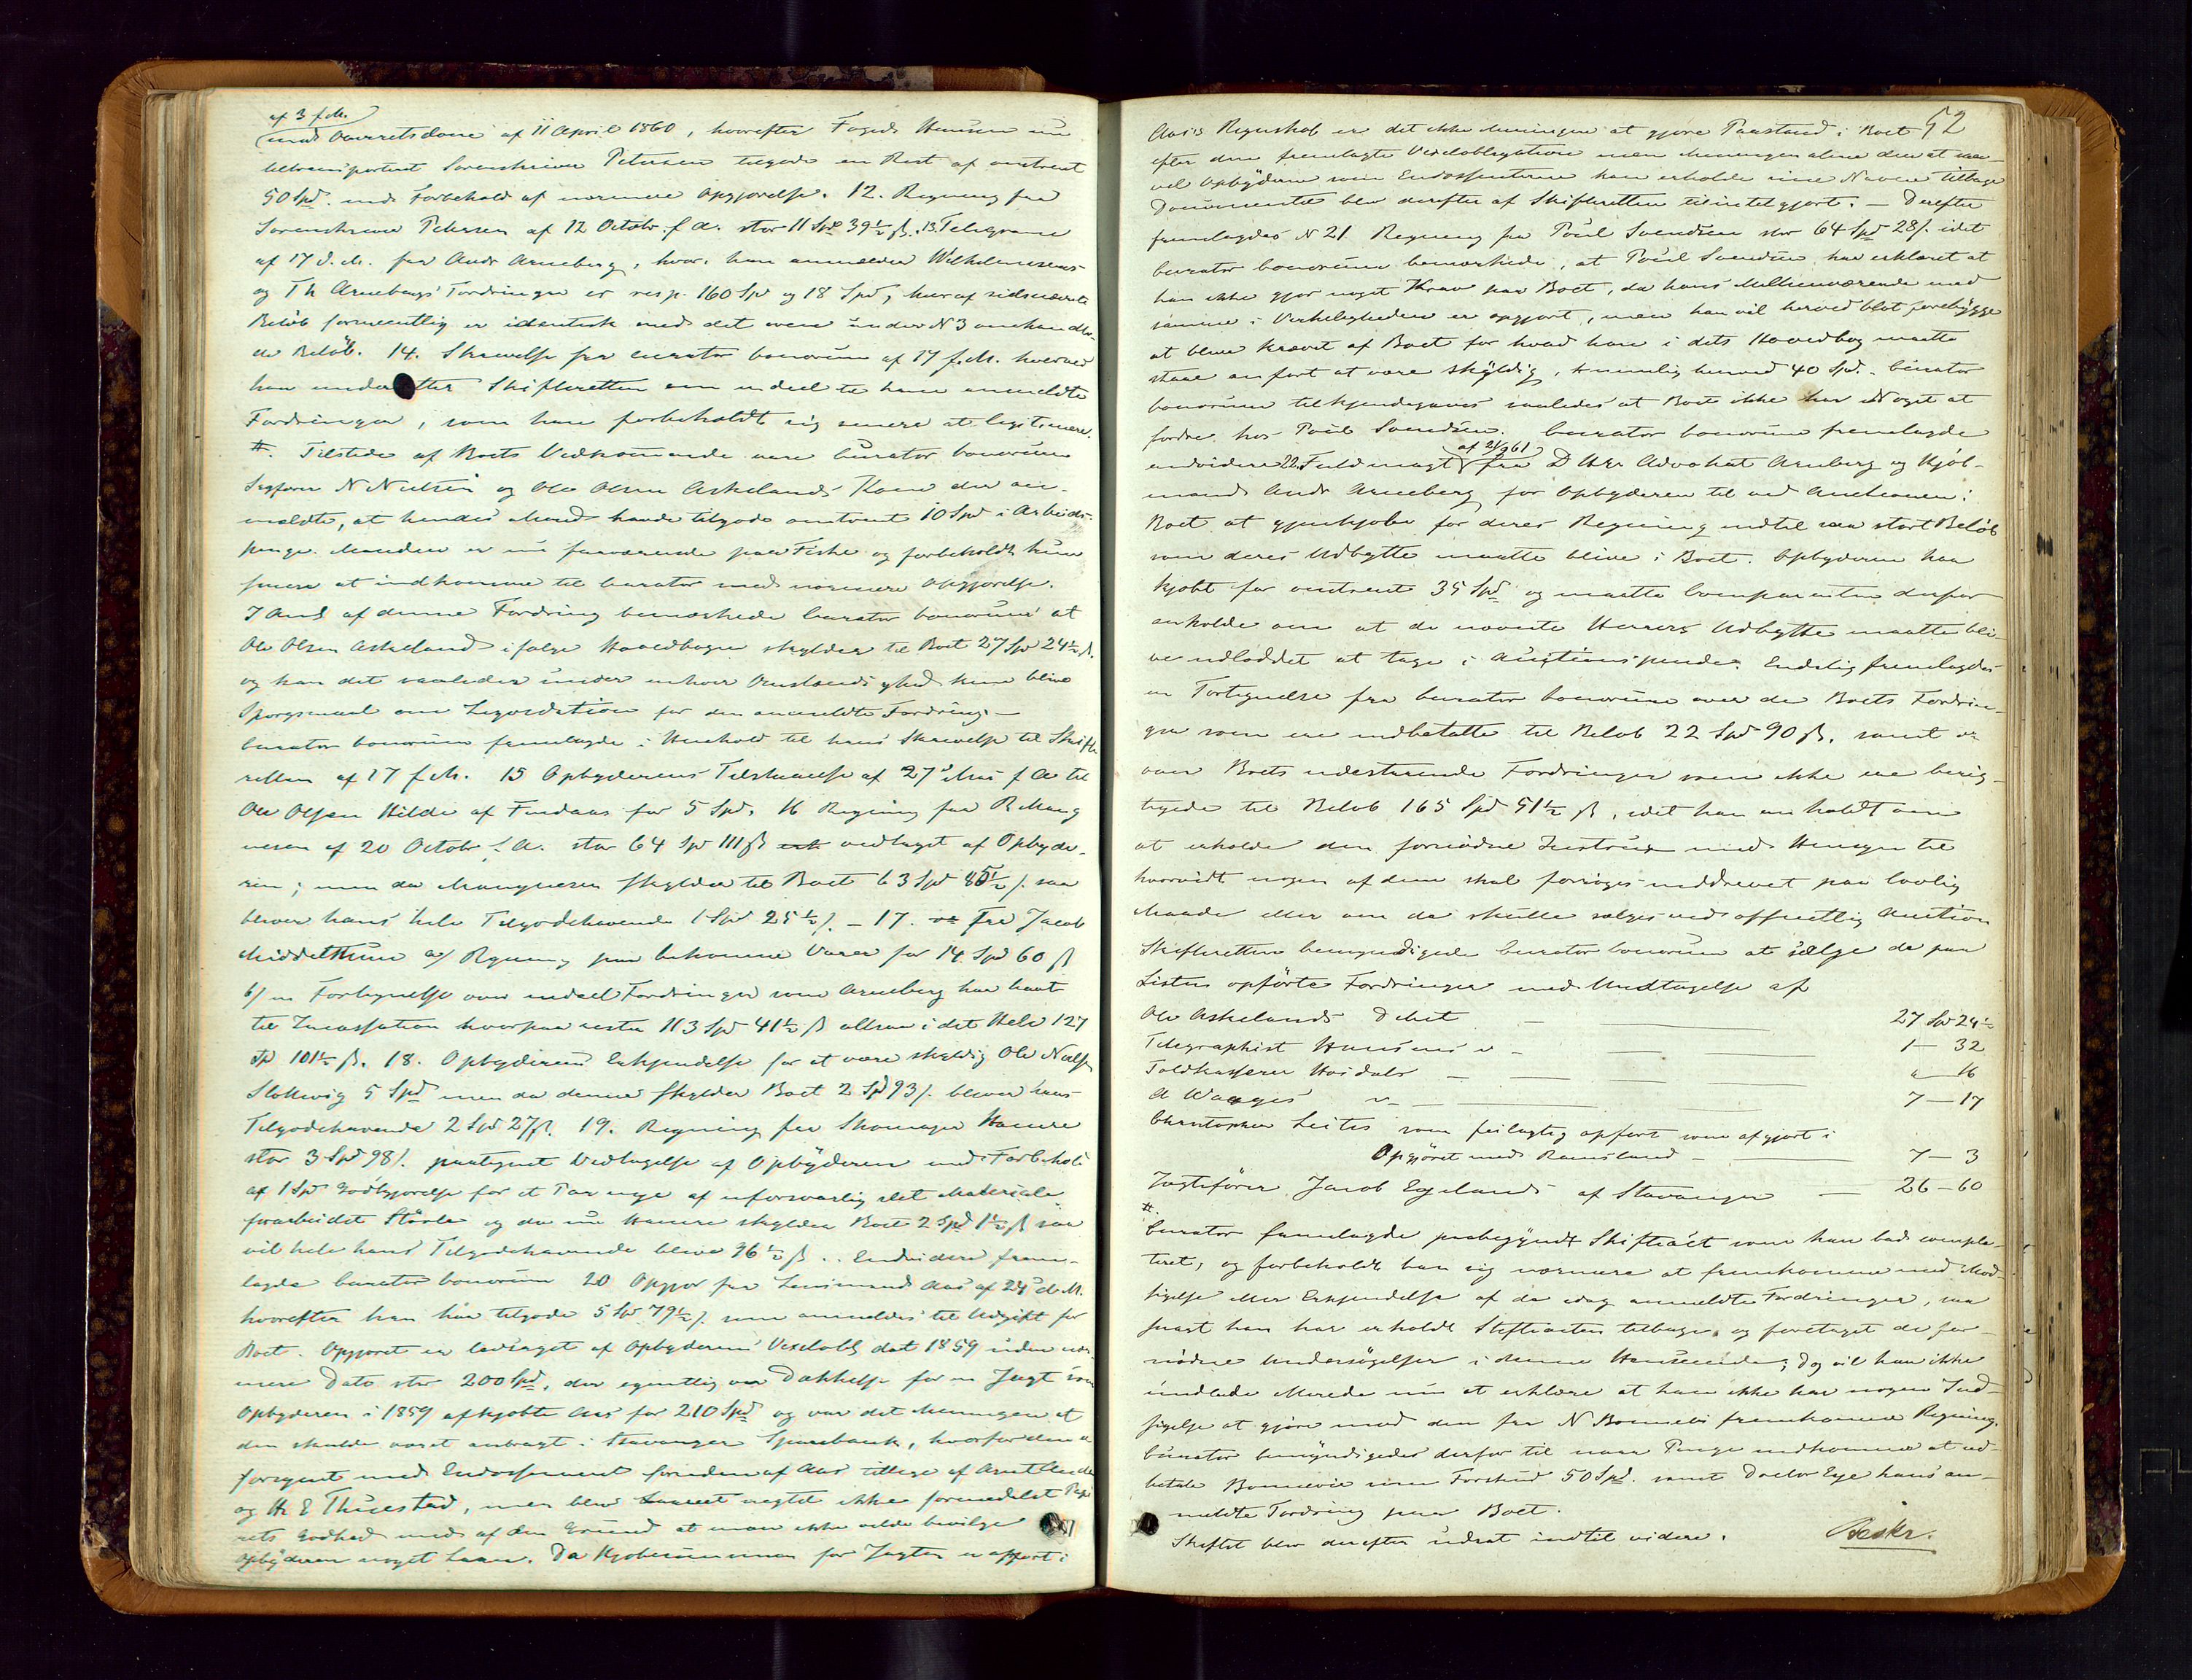 af 3 f.M.
med Overretsdom af 11 April 1860, hvorefter Foged Hansen nu
tiltransporteret Sorenskriver Petersen tilgode en Rest af omtrent
50 Spd. med Forbehold af nærmere Opgjørelse. 12. Regning fra
Sorenskriver Petersen af 12 Octobr. f. A. stor 11 Spd 39½ ß. 13. Telegram
af 17 d. M. fra Andr Arneberg, hvori han anmelder Wilhelmsens
og Th Arnebergs Fordringer er resp. 160 Spd og 18 Spd, hvoraf sidsnævnte
Beløb formeentlig er identisk med det oven under N 3 omhandle-
de Beløb. 14. Skrivelse fra curator bonorum af 17 f. M. hvorved
han underetter Skifteretten om endeel til ham anmeldte
Fordringer, som han forbeholdt sig senere at legitimere.
#. Tilstede af Boets Vedkommende vare Curator bonorum
Sagfører N Nielsen og Ole Olsen Askelands Kone der an-
meldte, at hendes Mand havde tilgode omtrent 10 Spd i Arbeids-
penge. Manden er nu fraværende paa Fiske og forbeholdt hun
senere at indkomme til Curator med nærmere Opgjørelse.
I Anl af denne Fordring bemærkede Curator bonorum at
Ole Olsen Askeland ifølge Hovedbogen skylder til Boet 27 Spd 24½ ß.
og kan det saaledes under enhver Omstændighed kun blive
Spørgsmaal om Liqvidation for den anmeldte Fordring. —
Curator bonorum fremlagde i Henhold til hans Skrivelse til Skifte
retten af 17 f. M. 15 Opbyderens Tilstaaelse af 27 Mai f A til
Ole Olsen Hilde af Findaas for 5 Spd. 16 Regning fra R Mang
nesen af 20 Octobr f. A. stor 64 Spd 111 ß vedtaget af Opbyde-
ren; men da Mangnesen skylder til Boet 63 Spd 85½ ß. saa
bliver hans hele Tilgodehavende 1 Spd 25½ ß. — 17. Fra Jacob
Middelthun a/ Regning paa bekomne Varer for 14 Spd 60 ß
b/ en Fortegnelse over endeel Fordringer som Arneberg har havt
til Incassation hvorpaa rester 113 Spd 41½ ß altsaa i det Hele 127
Spd 101½ ß. 18. Opbyderens Erkjendelse for at være skyldig Ole Nielsen
Stollevig 5 Spd men da denne skylder Boet 2 Spd 93 ß. bliver hans
Tilgodehavende 2 Spd 27 ß. 19. Regning fra Skomager Hamre
stor 3 Spd 98 ß. paategnet Vedtagelse af Opbyderen med Forbehold
af 1 Spd Godtgjørelse for et Par nye af uforsvarlig slet Materiale
forarbeidet Støvle og da nu Hamre skylder Boet 2 Spd 1½ ß saa
vil hele hans Tilgodehavende blive 96½ ß. Endvidere frem-
lagde Curator bonorum 20 Opgjør fra Lensmand Aas af 24 d. M.
hvorefter han har tilgode 5 Spd 79½ ß. som anmeldes til Udgift for
Boet. Opgjøret er ledsaget af Opbyderens Vexelobl. dat 1859 uden nær-
mere Dato stor 200 Spd, der egentlig var Dækkelse for en Jagt som
Opbyderen i 1859 afkjøbte Aas for 210 Spd og var det Meningen at
den skulde været anbragt i Stavanger Sparebank, hvorfor den er
forsynet med Endossement foruden af Aas tillige af Arnt
og H. E Thuestad, men blev nægtet ikke formedelst Papi
rets Godhed med af den Grund at man ikke vilde bevilge
Opbyderen noget Laan. Da Kjøbesummen for Jagten er opført i
52
Aas's Regnskab er det ikke Meningen at gjøre Paastand i Boet
efter den fremlagte Vexelobligation men Meningen alene den at saa-
vel Opbyderen som Endossenterne kan erholde sine Navne tilbage
Documentet blev derefter af Skifteretten tilintetgjort. — Derefter
fremlagdes N 21 Regning fra Poul Svendsen stor 64 Spd 28 ß. idet
Curator bonorum bemærkede, at Poul Svendsen har erklæret at
han ikke gjør noget Krav paa Boet, da hans Mellemværende med
samme i Virkeligheden er opgjort, men han vil herved blot forebygge
at blive krævet af Boet for hvad han i dets Hovedbog maatte
staae anført at være skyldig, nemlig herved 40 Spd. Curator
bonorum tilkjendegaves saaledes at Boet ikke har Noget at
fordre hos Poul Svendsen. Curator bonorum fremlagde
af 21/9 61
endvidere 22. Fuldmagt fra D Hrr Advokat Arneberg og Kjøb-
mand Andr Arneberg for Opbyderen til ved Auctionen i
Boet at gjenkjøbe for deres Regning indtil saa stort Beløb
som deres Udbytte maatte blive i Boet. Opbyderen har
kjøbt for omtrent 35 Spd og maatte Comparenten derfor
anholde om at de nævnte Herrers Udbytte maatte bli-
ve udloddet at tage i Auctionspenge. Endelig fremlagdes
en Fortegnelse fra Curator bonorum over de Boets Fordrin-
ger som ere indbetalte til Beløb 22 Spd 90 ß. samt er
over Boets udestaaende Fordringer som ikke ere berig-
tigede til Beløb 165 Spd 51½ ß, idet han anholdt om
at erholde den fornødne Instrux med Hensyn til
hvorvidt nogen af dem skal forsøges inddrevet paa lovlig
Maade eller om de skulle sælges ved offentlig Auction
Skifteretten bemyndigede Curator bonorum at sælge de paa
Listen opførte Fordringer med Undtagelse af
Ole Askelands Debet — 27 Spd 24½
Telegraphist Hansens " — 1 — 32
Toldkasserer Hoidals — " — 16
A Waages " — 7 — 17
Christopher Leites som feilagtig opført som afgjort i
Opgjøret med Ramsland — 7 — 3
Jagtefører Jacob Egelands af Stavanger — 26 — 60
#.
Curator fremlagde paabegyndt Skifteact som han bad comple-
teret, og forbeholdt han sig nærmere at fremkomme med Mod-
sigelse eller Erkjendelse af de idag anmeldte Fordringer, saa
snart han har erholdt Skifteacten tilbage og foretaget de for-
nødne Undersøgelser i denne Henseende; dog vil han ikke
undlade Allerede nu at erklære at han ikke har nogen Ind-
sigelse at gjøre mod den fra N Bonnevi fremkomne Regning.
Curator bemyndigedes derfor til naar Penge indkomme at ud-
betale Bonnevie som Forskud 50 Spd. samt Doctor Eye hans an-
meldte Fordring paa Boet.
Skiftet blev derefter udsat indtil videre.
Beskr.